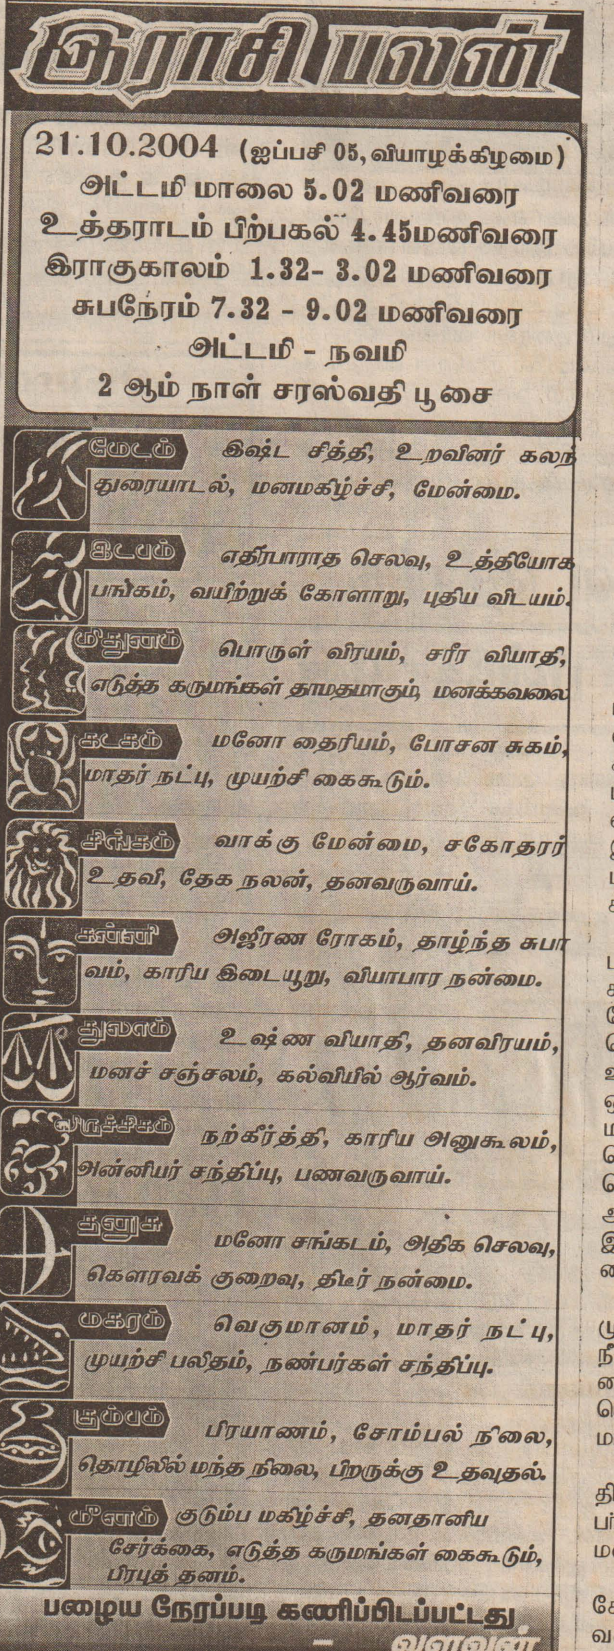 இராசி பலன்
21.10.2004 (ஐப்பசி 05,வியாழக்கிழமை)
அட்டமி மாலை 5.02 மணிவரை
உத்தராடம் பிற்பகல் 4.45மணிவரை
இராகுகாலம் 1.32- 3.02 மணிவரை
சுபநேரம் 7.32 - 9.02 மணிவரை
அட்டமி - நவமி
2 ஆம் நாள் சரஸ்வதி பூசை
மேடம் இஷ்ட சித்தி, உறவினர் கலந்
துரையாடல், மனமகிழ்ச்சி, மேன்மை.
இடபம் எதிர்பாராத செலவு, உத்தியோக
பங்கம், வயிற்றுக் கோளாறு, புதிய விடயம்.
மிதுனம் பொருள் விரயம், சரீர வியாதி,
எடுத்த கருமங்கள் தாமதமாகும், மனக்கவலை
கடகம் மனோ தைரியம், போசன சுகம்,
மாதர் நட்பு, முயற்சி கைகூடும்.
சிங்கம் வாக்கு மேன்மை, சகோதரர்
உதவி, தேக நலன், தனவருவாய்.
கன்னி அஜீரண ரோகம், தாழ்ந்த சுபா
வம், காரிய இடையூறு, வியாபார நன்மை.
துலாம் உஷ்ண வியாதி, தனவிரயம்,
மனச் சஞ்சலம், கல்வியில் ஆர்வம்.
விருச்சிகம் நற்கீர்த்தி, காரிய அனுகூலம்,
அன்னியர் சந்திப்பு, பணவருவாய்.
தனுசு மனோ சங்கடம், அதிக செலவு,
கௌரவக் குறைவு, திடீர் நன்மை.
மகரம் வெகுமானம், மாதர் நட்பு,
முயற்சி பலிதம், நண்பர்கள் சந்திப்பு.
கும்பம் பிரயாணம், சோம்பல் நிலை,
தொழிலில் மந்த நிலை, பிறருக்கு உதவுதல்.
மீனம் குடும்ப மகிழ்ச்சி, தனதானிய
சேர்க்கை, எடுத்த கருமங்கள் கைகூடும்,
பிரபுத் தனம்.
பழைய நேரப்படி கணிப்பிடப்பட்டது
-